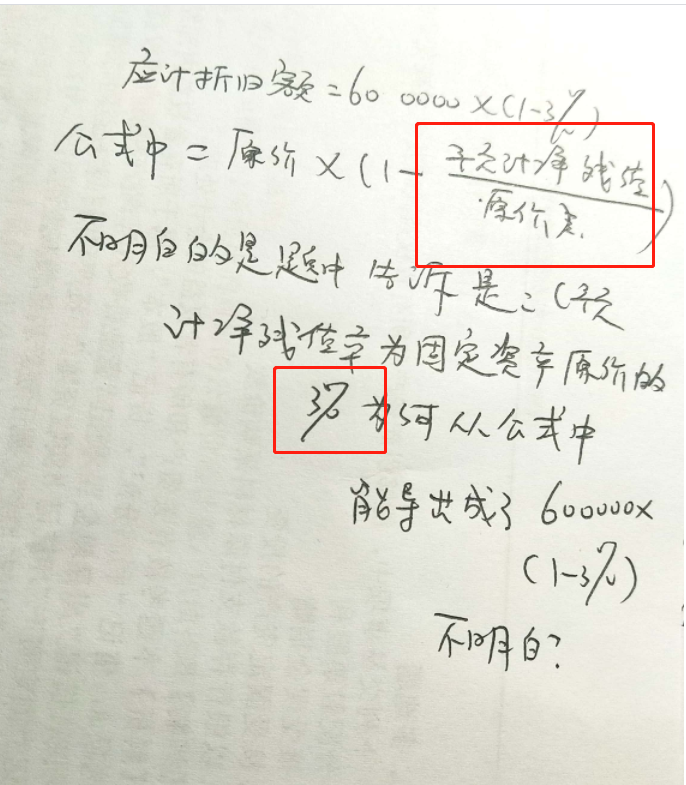 应计折旧额=600000×(1-3%)
公式中=原价×(1-
预计净残值
原价
)
不明白的是题中告诉是:(预
计净残值率为固定资产原价的
3%为何从公式中
能导出成了600000×
(1-3%)
不明白?